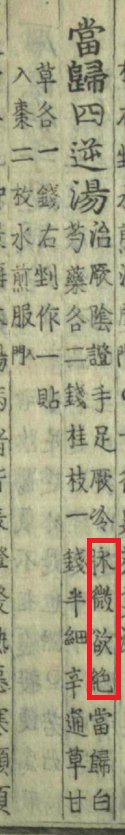 當歸四逆湯
治厥陰證手足厥冷脉微欲絶當歸白
芍藥各二錢桂枝一錢半細辛通草甘
草各一錢右剉作一貼
入棗二枚水煎服入門
發熱惡寒頭項